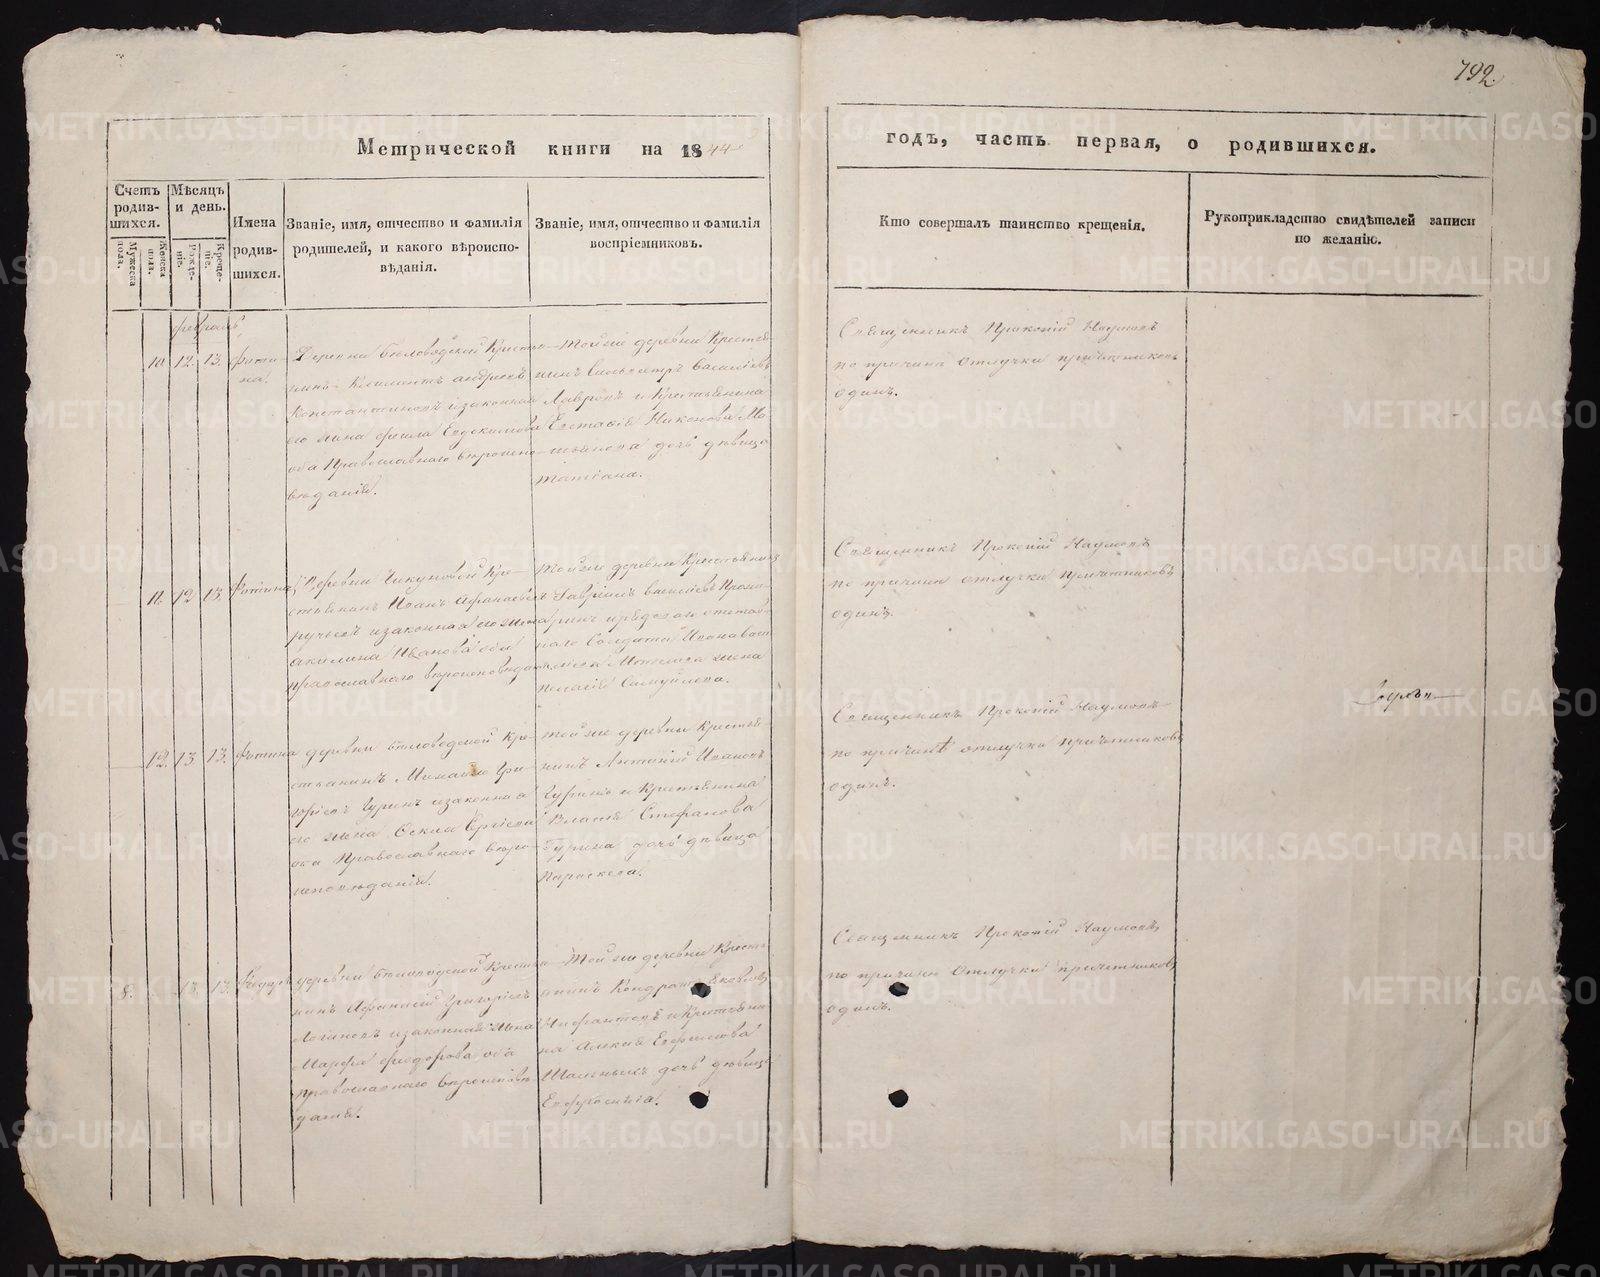 792
Метрической книги на 1844
годъ, часть первая, о родившихся.
Счетъ родив-шихся.
Мужеска пола.
Женска пола.
Мѣсяцъ и день.
Рожде-нiе.
Креще-нiе.
Имена родив-шихся.
Званiе, имя, отчество и фамилiя родителей, и какого вѣроиспо-вѣданiя.
Званiе, имя, отчество и фамилiя воспрiемниковъ.
Кто совершалъ таинство крещенiя.
Рукоприкладство свидѣтелей записи по желанiю.
февраль
10 12. 13. Фоти-
на.
Деревни Бѣловодской Крестья-
нинъ Климентъ Андреевъ
Константиновъ и законная
его жена Фекла Евдокимова
оба Православнаго вѣроиспо-
вѣданiя.
той же деревни Крестья-
нинъ Василiевъ
Лавровъ и Крестьянина
Евстафiя Никонова
дочь дѣвица
Татiана.
Священникъ Прокопiй Наумовъ
по причинѣ отлучки причетниковъ
одинъ.
11. 12 13. Фотина
Деревни Чикуновой Кре-
стьянинъ Иванъ Афанасьевъ
и законная его жена
Акилина Иванова оба
православнаго вѣроисповѣданiя
той же деревни Крестьянинъ
Гаврiилъ Василiевъ
отстав-
наго Солдата Ивана
жена
Пелагiя Самуйлова.
Священникъ Прокопiй Наумовъ
по причинѣ отлучки причетниковъ
одинъ.
12. 13. 13. Фотина
деревни Бѣловодской Кре-
стьянинъ Михайло Гри-
горiевъ Гуринъ и законная
его жена Сергiева
оба Православнаго вѣро-
исповѣданiя.
той же деревни Крестья-
нинъ Антонiй Ивановъ
Гуринъ и Крестьянина
Власiя Стефанова
Гурина дочь дѣвица
Параскева.
Священникъ Прокопiй Наумовъ
по причинѣ отлучки причетниковъ
одинъ.
8. 13. 13. Федоръ
деревни Бѣловодской Крестья-
нинъ Афанасiй Григорiевъ
Логиновъ и законная жена
Марфа Феодорова оба
православнаго вѣроисповѣ-
данiя.
той же деревни Кресть-
янинъ Кондратъ Яковлевъ
и Крестьяни-
на Алексiя Ефримова
дочь дѣвица
Евфросинiа.
Священникъ Прокопiй Наумовъ
по причинѣ отлучки причетниковъ
одинъ.
METRIKI.GASO-URAL.RU